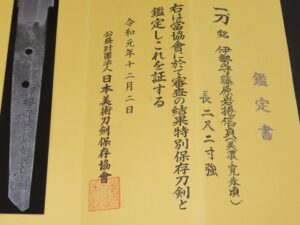 鑑定書
一、刀 銘 伊勢守藤原岩捲信貞(美濃・寛永頃)
長 二尺二寸強
右は當協會に於て審査の結果特別保存刀剣と
鑑定しこれを証する
令和元年十二月二日
公益財團法人日本美術刀剣保存協會